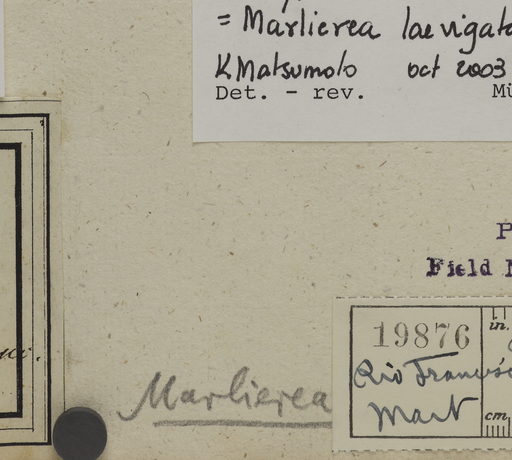 = Marlierea laevigata
K Matsumoto oct 2003
Det. - rev. Mü
P
Field
19876
in.
Rio Francisc
Mart
cm
Marlierea